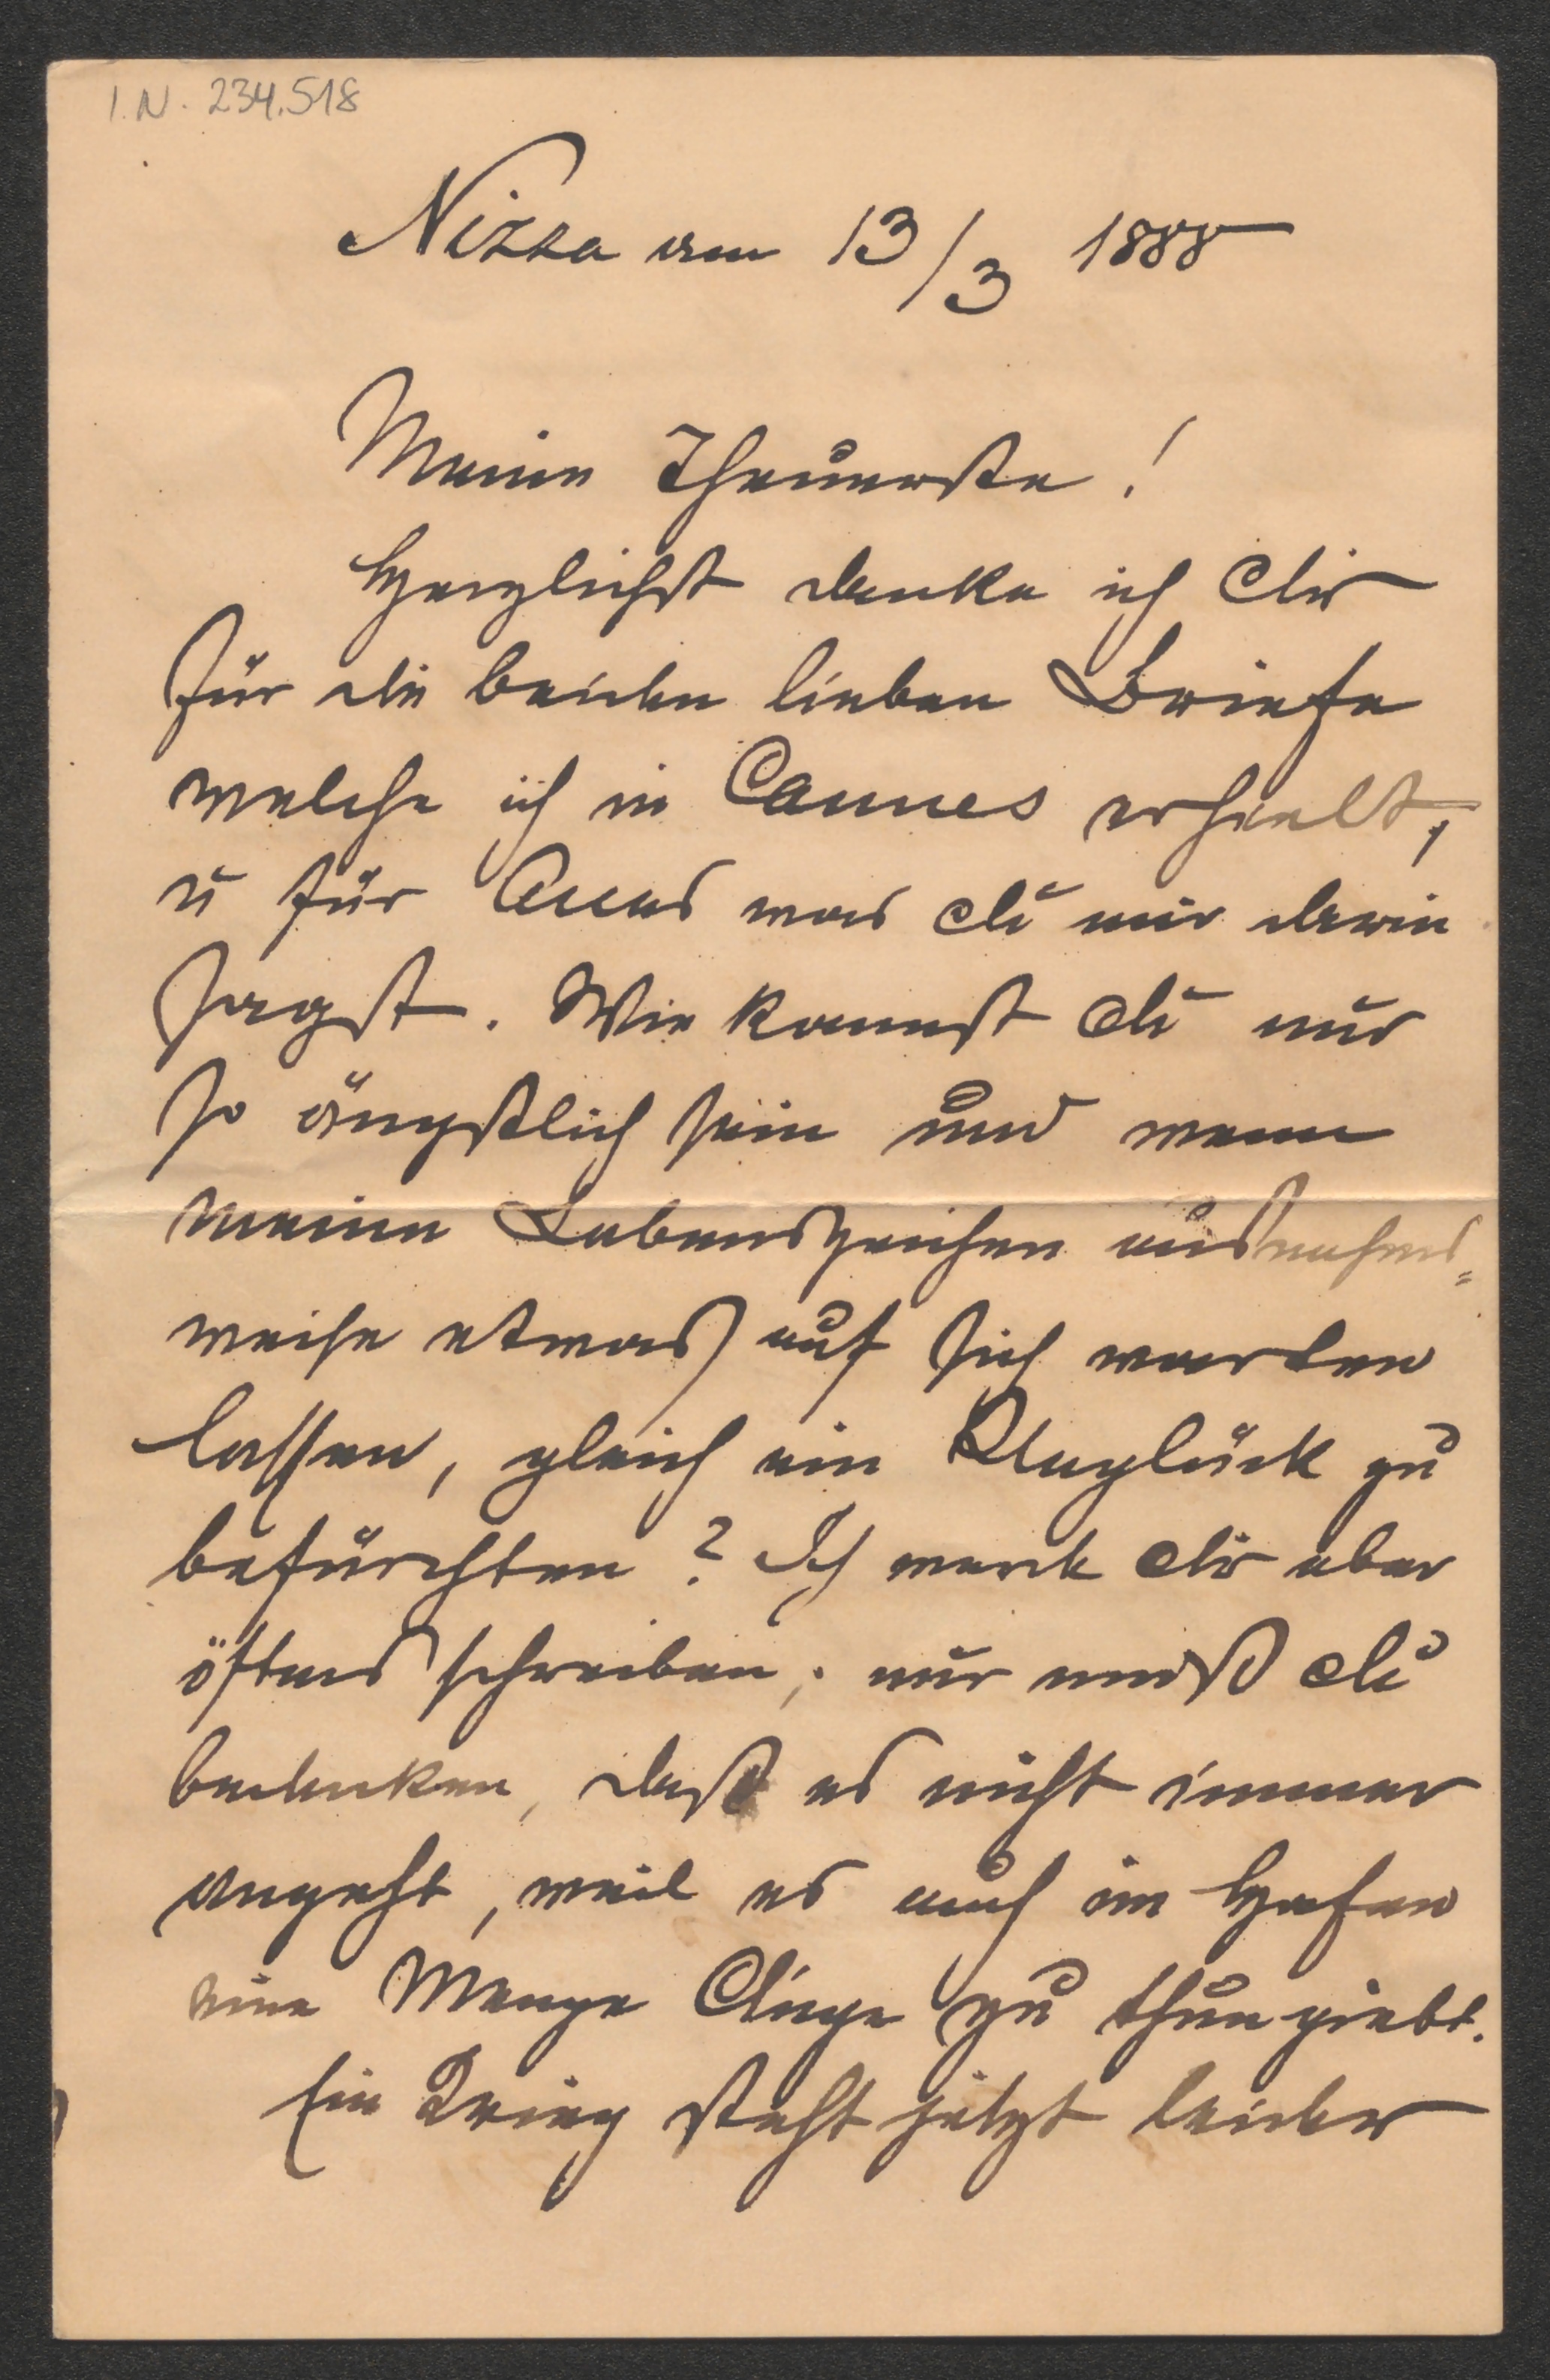 I.N. 234.518
Nizza am 13/3 1888
Meine Theuerste!
Herzlichst danke ich Dir
für die beiden lieben Briefe
welche ich in Cannes erhielt,
u für Alles was Du mir darin
sagst. Wie kannst Du nur
so ängstlich sein und wenn
meine Lebenszeichen ausnahms=
weise etwas auf sich warten
lassen, gleich ein Unglück zu
befürchten? Ich werde Dir aber
öfters schreiben; nur mußt Du
bedenken, daß es nicht immer
angeht, weil es auch im Hafen
eine Menge Dinge zu thun giebt.
Ein Krieg steht jetzt leider